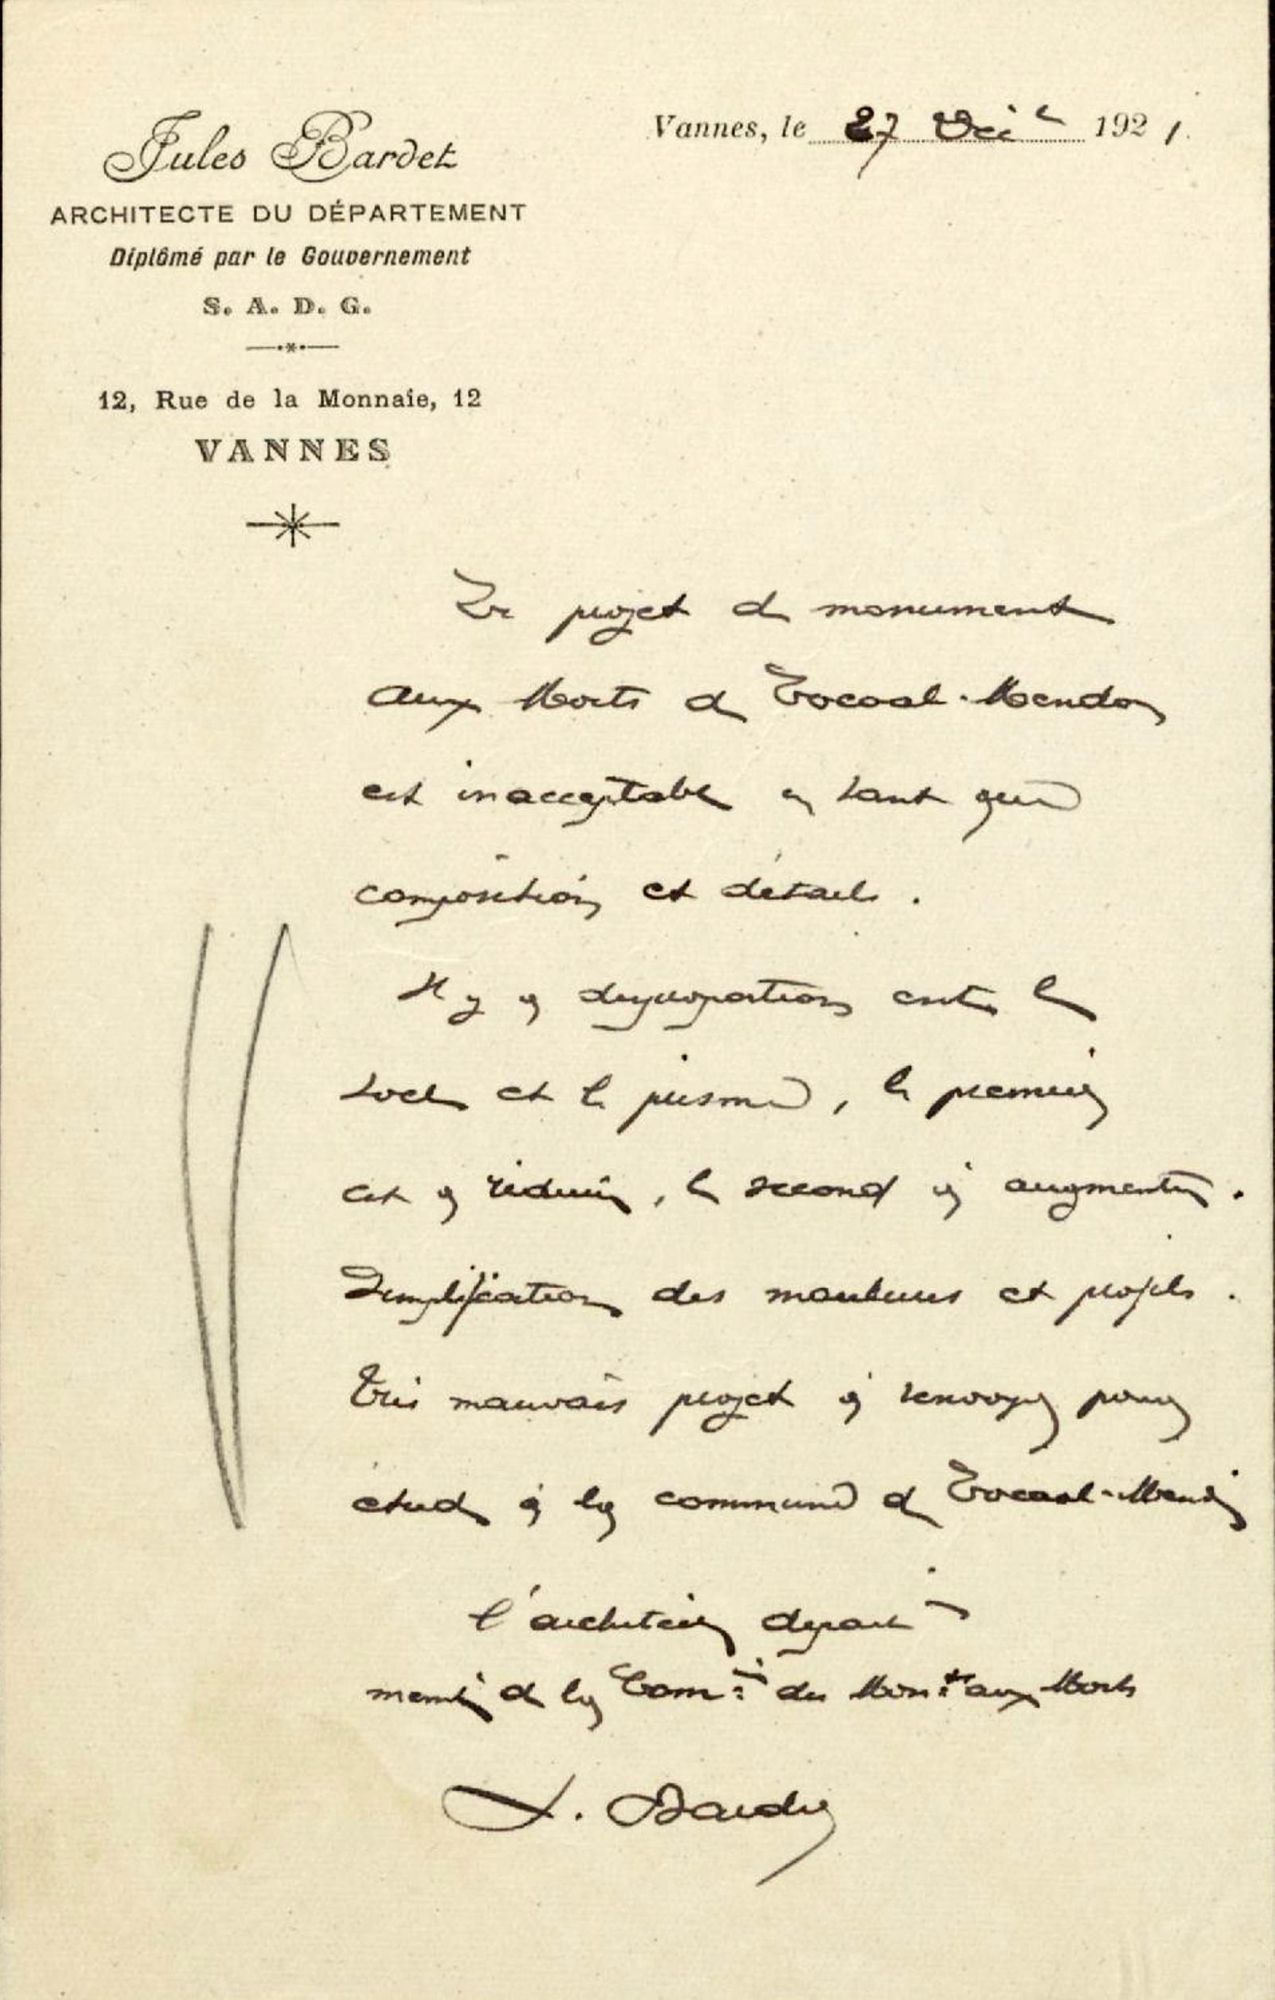 Jules Bardet
ARCHITECTE DU DÉPARTEMENT
Diplômé par le Gouvernement
S. A. D. G.
12, Rue de la Monnaie, 12
VANNES
Vannes, le 27 1921
Le projet de monument
aux Morts de Locoal-Mendon
est inacceptable en tant que
composition et détails.
Il y a disproportion entre le
socle et le prisme, le premier
est à réduire, le second à augmenter.
Simplification des moulures et profils.
Très mauvais projet à renvoyer pour
étude à la commune de Locoal-Mendon
l'architecte départ
membre de la Com: des Mon:ts aux Morts
J. Bardet